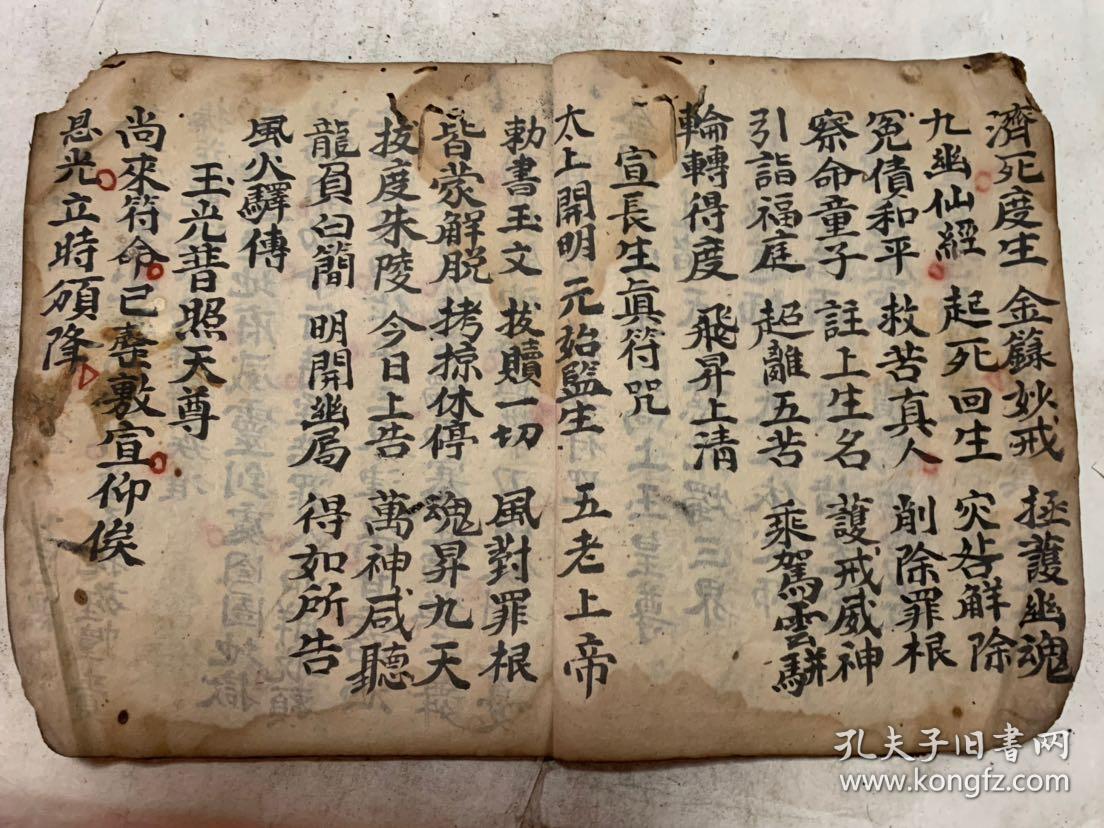 濟死度生 金籙妙戒 拯護幽魂
九幽仙經 起死回生 灾咎解除
冤債和平 救苦真人 削除罪根
察命童子 註上生名 護戒威神
引詣福庭 超離五苦 乘駕雲軿
輪轉得度 飛昇上清
宣長生真符咒
太上開明 元始監生 五老上帝
勅書玉文 拔贖一切 風對罪根
皆蒙解脫 拷掠休停 魂昇九天
拔度朱陵 今日上告 萬神咸聽
龍負白簡 明開幽局 得如所告
風火驛傳
玉光普照天尊
尚來符命已 敷宣仰俟
恩光立時頒降
孔夫子旧书网
www.kongfz.com